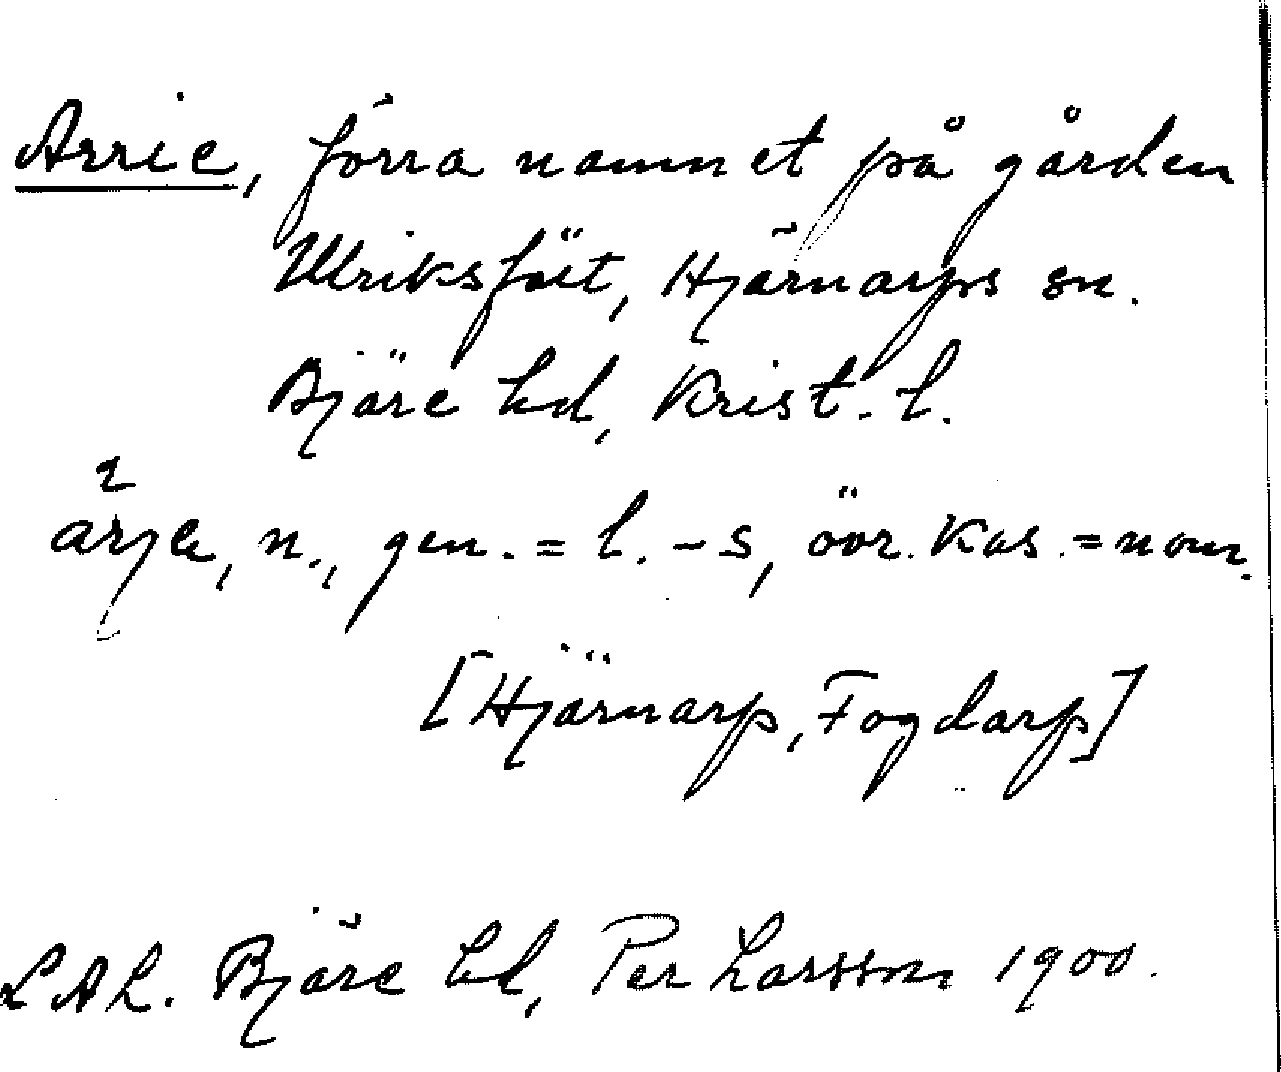 Arrie, förra namnet på gården
Ulriksfält, Hjärnarps sn.
Bjäre hd, Krist. l.
n., gen. = l. -s, övr. kas. = nom.
[Hjärnarp, Fogdarp]
LAL. Bjäre hd, Per Larsson 1900.